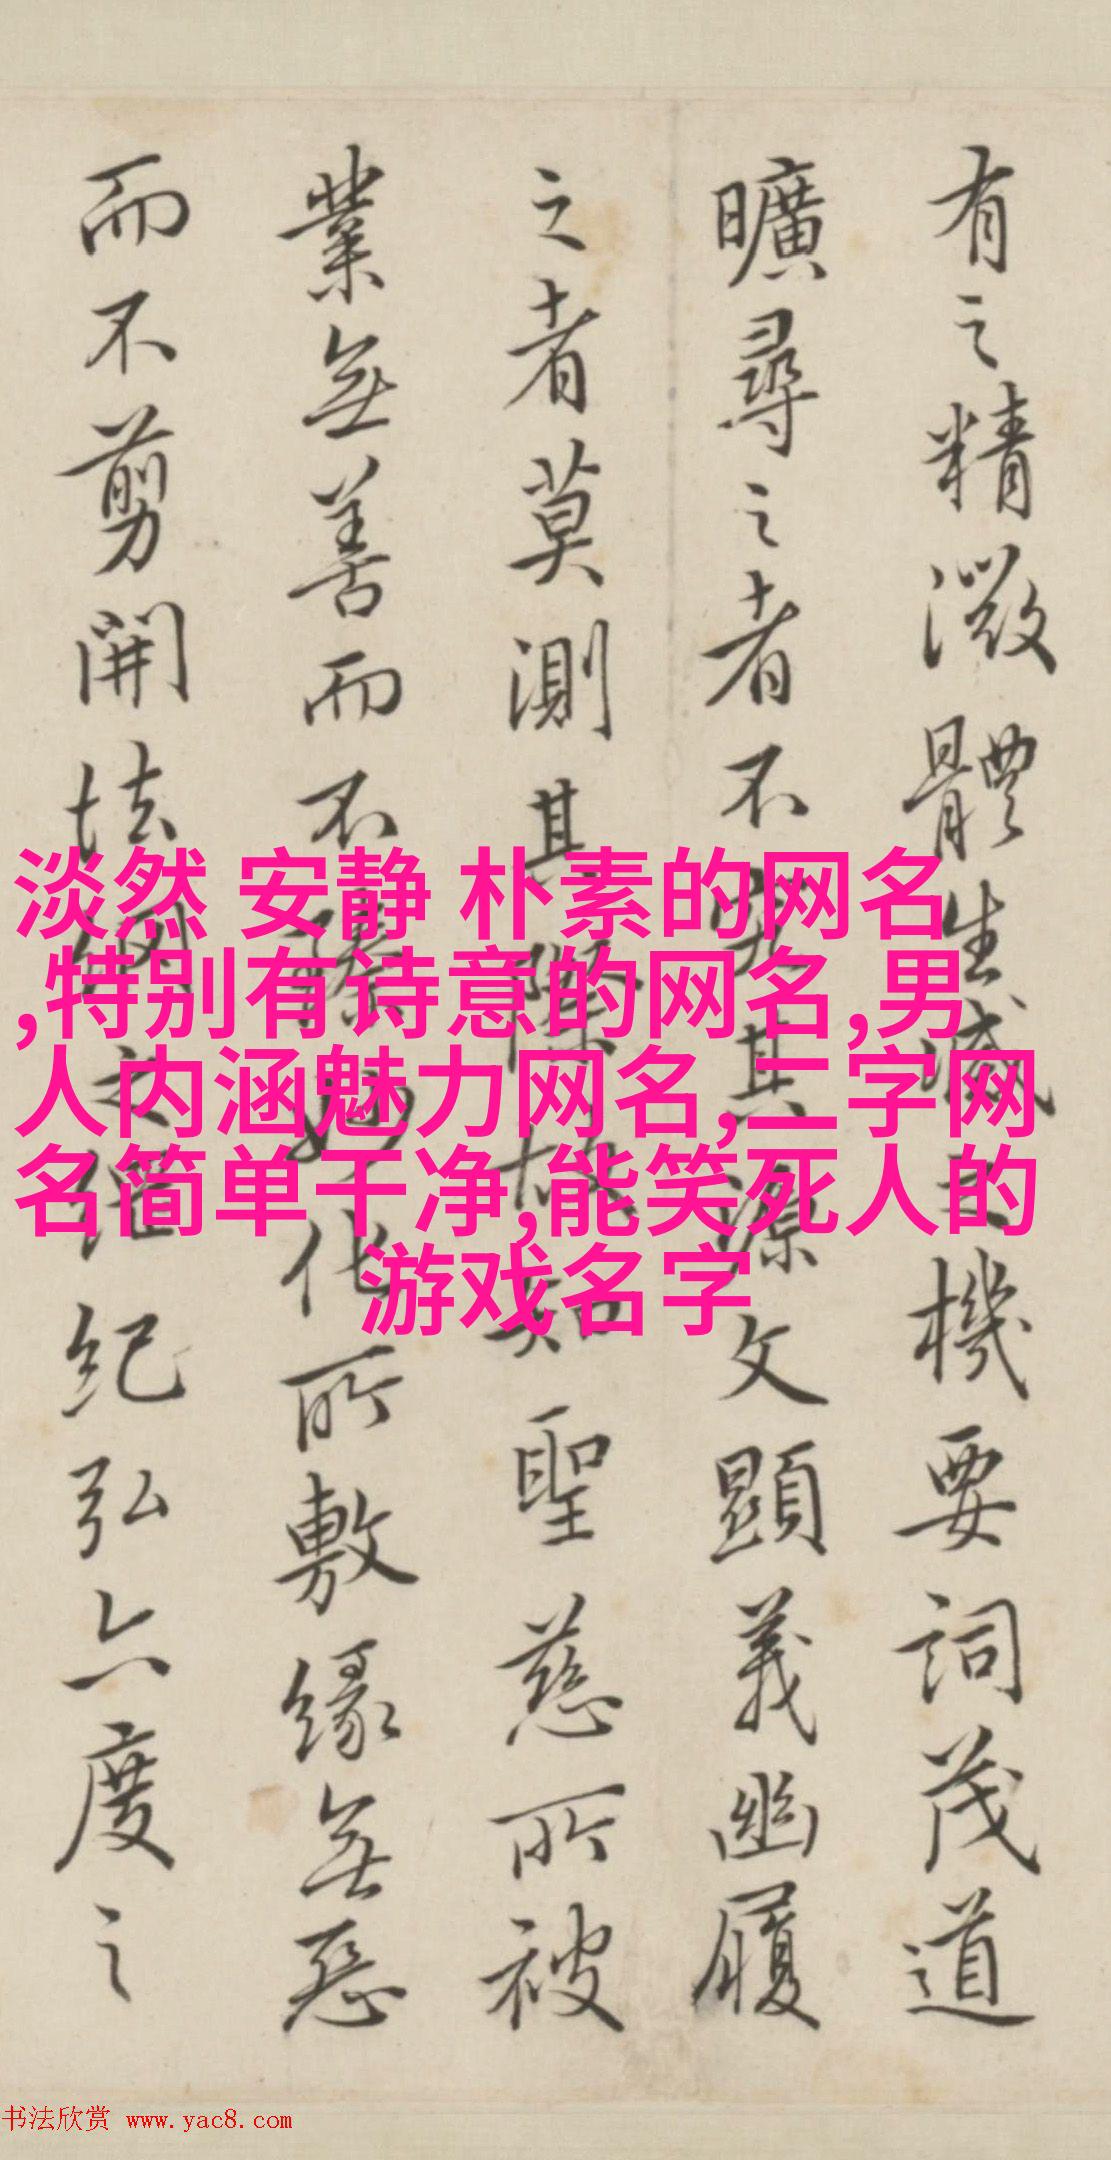 有之精微體生滅之機要詞茂道
曠尋之者不究其源文顯義幽履
之者莫測其際故知聖慈所被
業無善而不臻妙化所敷緣無惡
而不剪開法網之綱紀弘六度之
淡然 安静 朴素的网名
,特别有诗意的网名,男
人内涵魅力网名,二字网
名简单干净,能笑死人的
游戏名字
书法欣赏 www.yac8.com